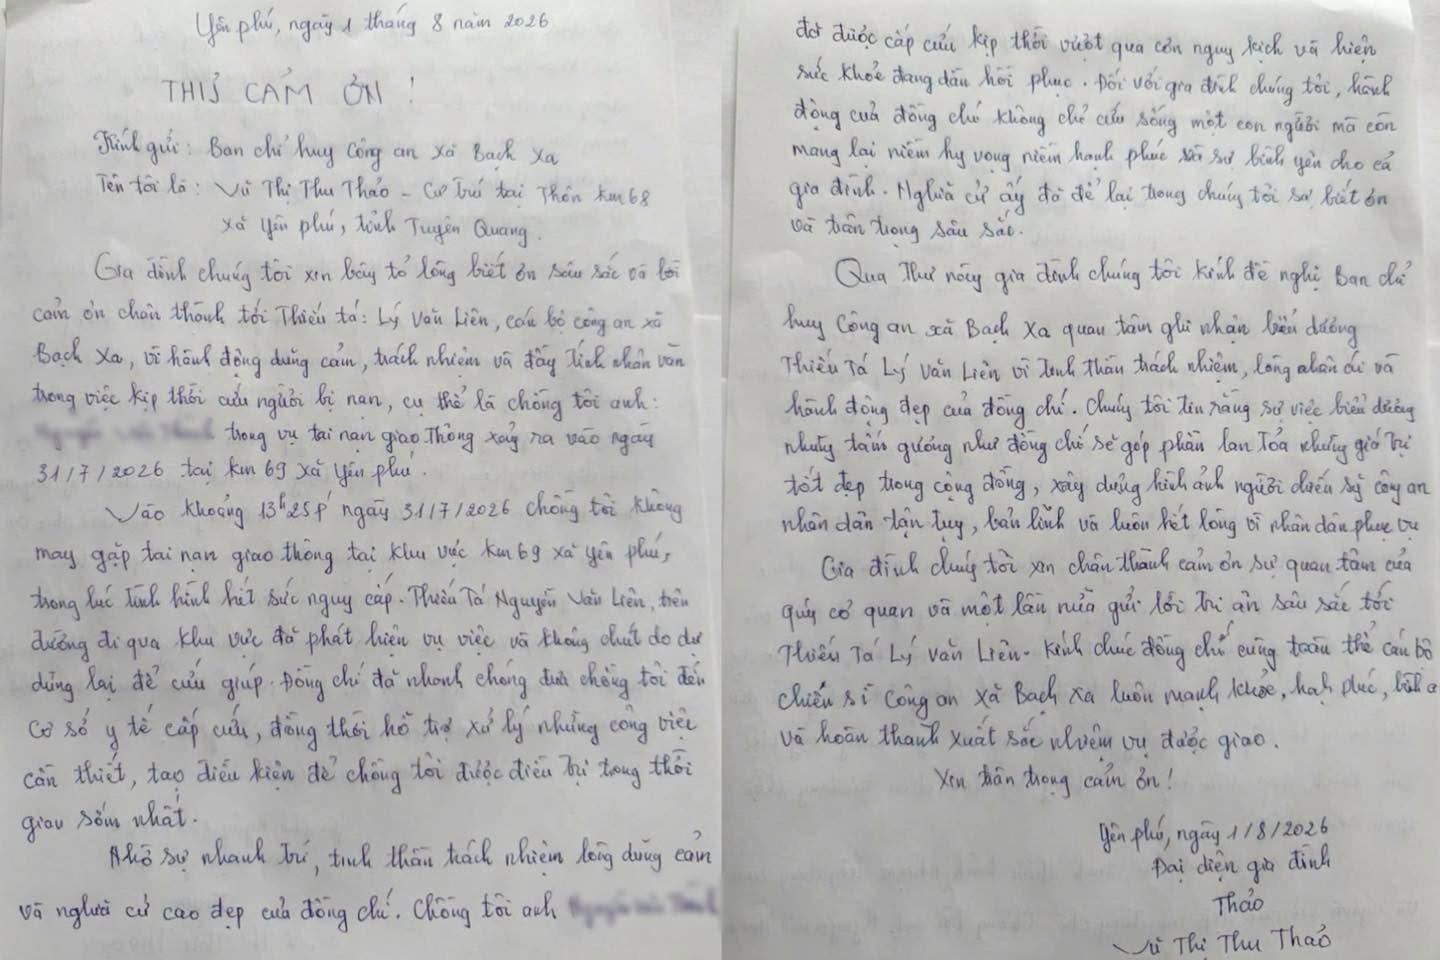 Yên phú, ngày 1 tháng 8 năm 2026
THƯ CẢM ƠN !
Kính gửi: Ban chỉ huy Công an xã Bạch Xa
Tên tôi là: Vũ Thị Thu Thảo - Cư trú tại Thôn Km68
xã Yên phú, tỉnh Tuyên Quang.
Gia đình chúng tôi xin bày tỏ lòng biết ơn sâu sắc và lời
cảm ơn chân thành tới Thiếu tá: Lý Văn Liên, cán bộ công an xã
Bạch Xa, vì hành động dũng cảm, trách nhiệm và đầy tính nhân văn
trong việc kịp thời cứu người bị nạn, cụ thể là chồng tôi anh:
trong vụ tai nạn giao thông xảy ra vào ngày
31/7/2026 tại km 69 xã Yên phú.
Vào khoảng 13h25p ngày 31/7/2026 chồng tôi không
may gặp tai nạn giao thông tại khu vực km69 xã Yên phú,
trong lúc tình hình hết sức nguy cấp. Thiếu Tá Nguyễn Văn Liên, trên
đường đi qua khu vực đã phát hiện vụ việc và không chút do dự
dừng lại để cứu giúp. Đồng chí đã nhanh chóng đưa chồng tôi đến
cơ sở y tế cấp cứu, đồng thời hỗ trợ xử lý những công việc
cần thiết, tạo điều kiện để chồng tôi được điều trị trong thời
gian sớm nhất.
Nhờ sự nhanh trí, tinh thần trách nhiệm lòng dũng cảm
và nghĩa cử cao đẹp của đồng chí. Chồng tôi anh
đã được cấp cứu kịp thời vượt qua cơn nguy kịch và hiện
sức khỏe đang dần hồi phục. Đối với gia đình chúng tôi, hành
động của đồng chí không chỉ cứu sống một con người mà còn
mang lại niềm hy vọng niềm hạnh phúc và sự bình yên cho cả
gia đình. Nghĩa cử ấy đã để lại trong chúng tôi sự biết ơn
và trân trọng sâu sắc.
Qua Thư này gia đình chúng tôi kính đề nghị Ban chỉ
huy Công an xã Bạch Xa quan tâm ghi nhận biểu dương
Thiếu Tá Lý Văn Liên vì tinh thần trách nhiệm, lòng nhân ái và
hành động đẹp của đồng chí. Chúng tôi tin rằng sự việc biểu dương
những tấm gương như đồng chí sẽ góp phần lan Tỏa những giá trị
tốt đẹp trong cộng đồng, xây dựng hình ảnh người chiến sỹ công an
nhân dân tận tụy, bản lĩnh và luôn hết lòng vì nhân dân phục vụ
Gia đình chúng tôi xin chân thành cảm ơn sự quan tâm của
quý cơ quan và một lần nữa gửi lời tri ân sâu sắc tới
Thiếu Tá Lý Văn Liên. Kính chúc đồng chí cùng toàn thể cán bộ
chiến sĩ Công an xã Bạch Xa luôn mạnh khỏe, hạnh phúc,
và hoàn thành xuất sắc nhiệm vụ được giao.
Xin trân trọng cảm ơn!
Yên phú, ngày 1/8/2026
Đại diện gia đình
Thảo
Vũ Thị Thu Thảo